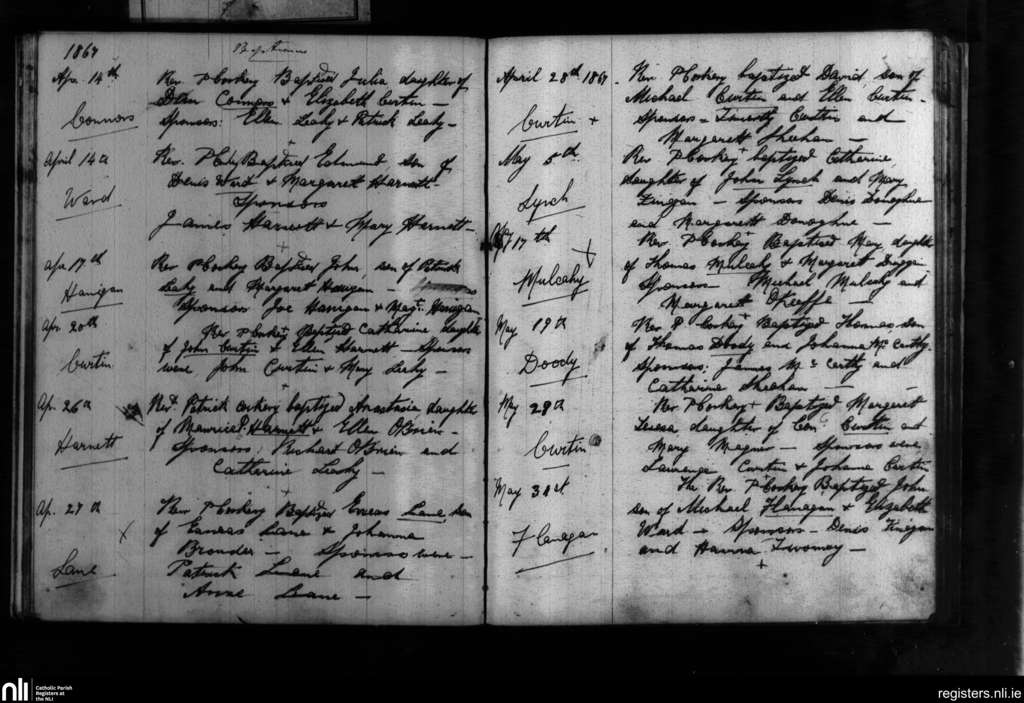 1867
Baptisms
Apr. 14th
Rev P Corkery Baptized Julia daughter of
Connors & Elizabeth Curtin —
Connors
Sponsors: Ellen Leahy & Patrick Leahy —
April 14th
Rev. Baptized Edmund son of
Denis Ward & Margaret Harnett —
Ward
Sponsors
James Harnett & Mary Harnett —
Apr. 17th
Rev P Corkery Baptized John, son of Patrick
and Margaret Hanigan —
Hanigan
Sponsors Joe Hanigan & Hanigan
Apr. 20th
Rev P Corkery Baptized Catherine daughter
of John Curtin & Ellen Harnett — Sponsors
Curtin
were John Curtin & Mary Leahy —
Ap. 26th
Revd. Patrick Corkery baptized Anastasia daughter
of Maurice Harnett & Ellen O'Brien —
Harnett
Sponsors, Richard O'Brien and
Catherine Leahy —
Ap. 27th
Rev P Corkery Baptized Eneas Lane, son
of Eaneas Lane & Johanna
Brouder — Sponsors were —
Lane
Patrick Leane and
Anne Leane —
April 28th 1867.
Rev. P Corkery baptized David, son of
Michael Curtin and Ellen Curtin —
Curtin +
Sponsors — Timothy Curtin and
Margarett Sheehan —
May 5th
Rev P Corkery baptized Catherine,
daughter of John Lynch and Mary
Lynch
Finegan — Sponsors Denis Donoghue
and Margarett Donoghue —
17th
Rev. P Corkery Baptized Mary daughter
of Thomas Mulcahy & Margaret Duggan
Mulcahy
Sponsors Michael Mulcahy and
Margarett O'Keeffe —
May 19th
Rev P Corkery Baptized Thomas, son
of Thomas Doody and Johanna McCarthy.
Doody
Sponsors; James McCarthy and
Catherine Sheehan —
May 28th
Rev P Corkery Baptized Margaret
Teresa daughter of Con: Curtin and
Curtin
Mary Magner — Sponsors were
Laurence Curtin & Johana Curtin
May 31st
The Rev. P Corkery Baptized John
son of Michael Flanagan & Elizabeth
Flanagan
Ward — Sponsors — Denis Finegan
and Hanna Twomey —
nli
Catholic Parish
Registers at
the NLI
registers.nli.ie